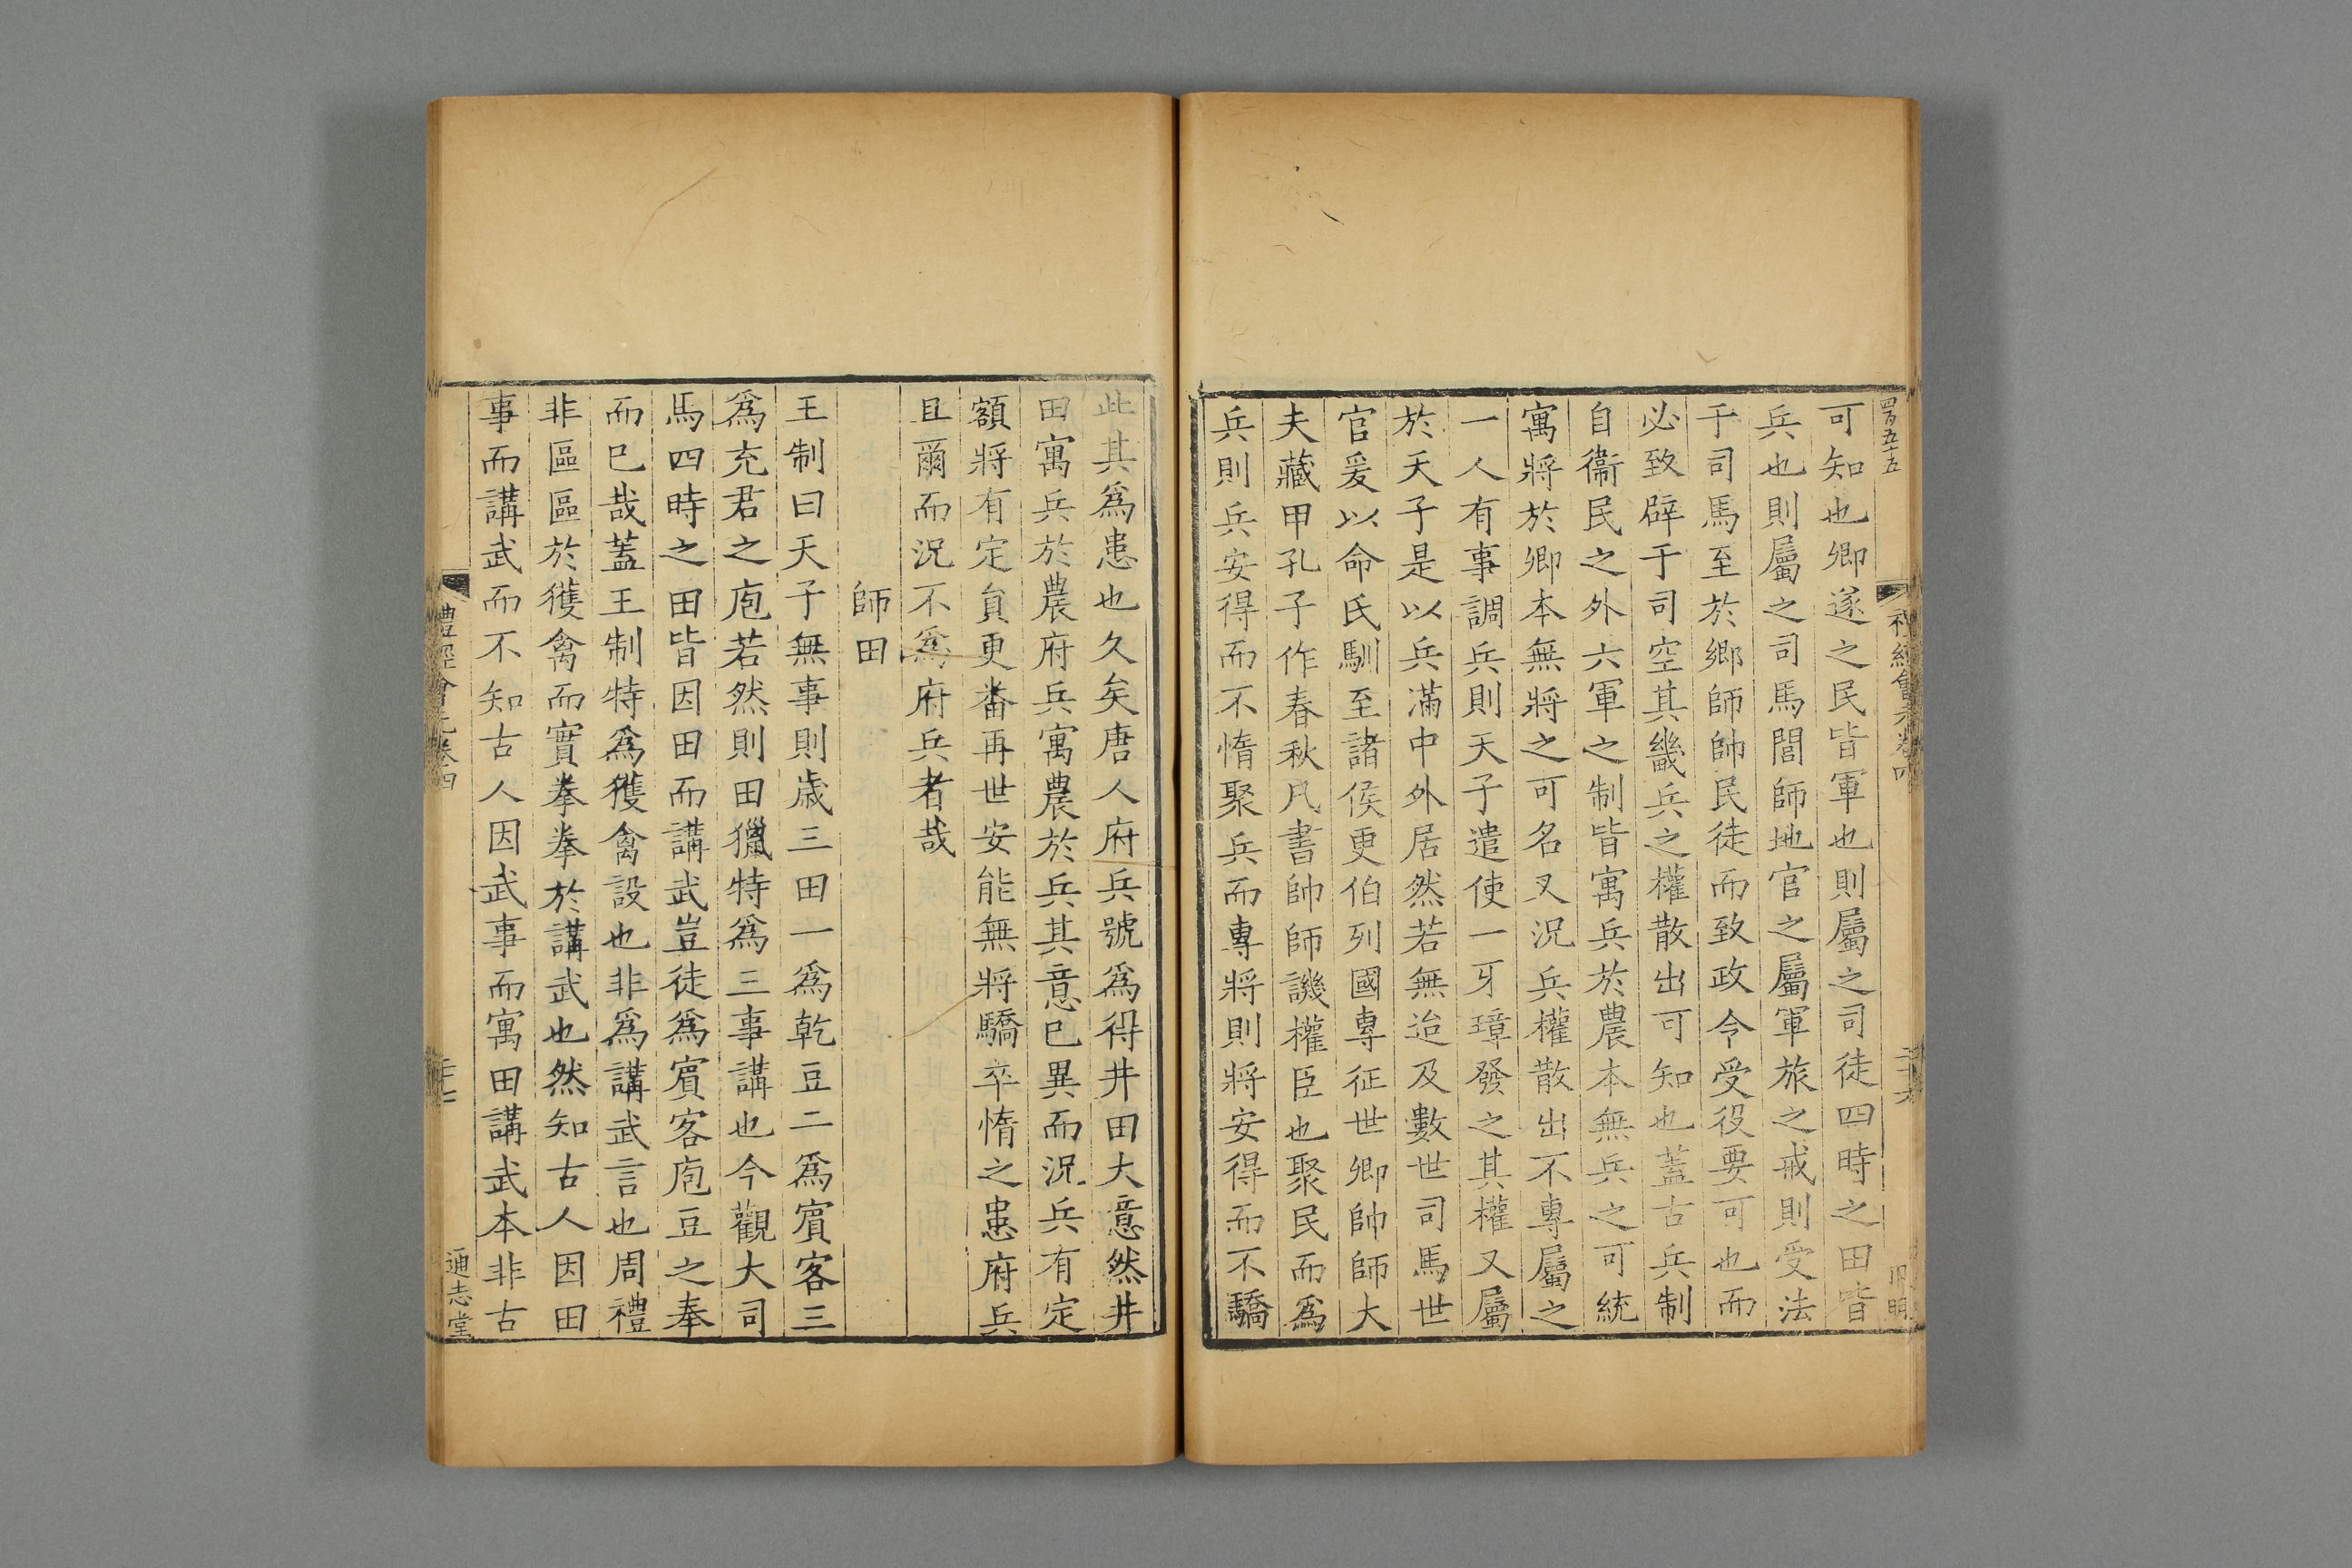 四百五十五
可知也鄉遂之民皆軍也則屬之司徒四時之田皆
兵也則屬之司馬閭師地官之屬軍旅之戒則受法
于司馬至於鄉師帥民徒而致政令受役要可也而
必致辟于司空其畿兵之權散出可知也蓋古兵制
自衞民之外六軍之制皆寓兵於農本無兵之可統
寓將於卿本無將之可名又況兵權散出不專屬之
一人有事調兵則天子遣使一牙璋發之其權又屬
於天子是以兵滿中外居然若無迨及數世司馬世
官爰以命氏馴至諸侯更伯列國專征世卿帥師大
夫藏甲孔子作春秋凡書帥師譏權臣也聚民而爲
兵則兵安得而不惰聚兵而專將則將安得而不驕
此其爲患也久矣唐人府兵號爲得井田大意然井
田寓兵於農府兵寓農於兵其意已異而況兵有定
額將有定員更番再世安能無將驕卒惰之患府兵
且爾而況不爲府兵者哉
師田
王制曰天子無事則歲三田一爲乾豆二爲賓客三
爲充君之庖若然則田獵特爲三事講也今觀大司
馬四時之田皆因田而講武豈徒爲賓客庖豆之奉
而已哉蓋王制特爲獲禽設也非爲講武言也周禮
非區區於獲禽而實拳拳於講武也然知古人因田
事而講武而不知古人因武事而寓田講武本非古
禮經會元卷四
通志堂